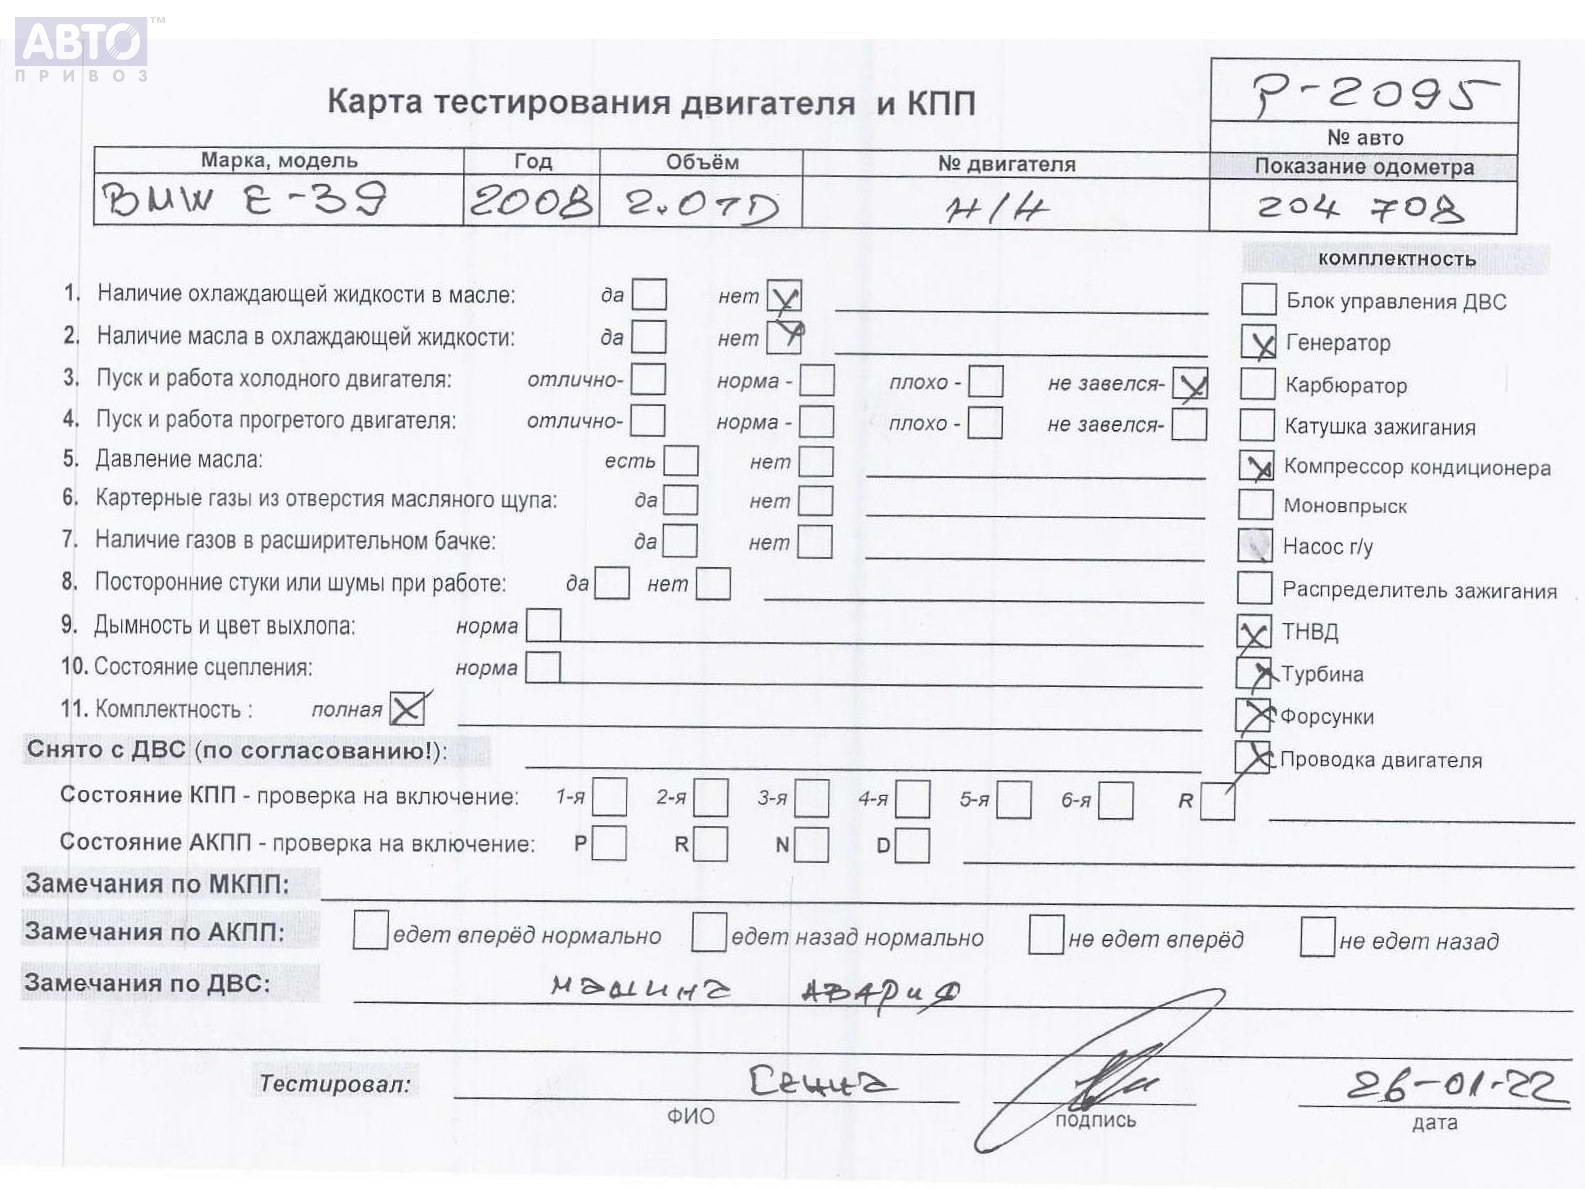 АВТО™
ПРИВОЗ
Карта тестирования двигателя и КПП
P-2095
№ авто
Марка, модель Год Объём № двигателя Показание одометра
BMW E-39 2008 2.0TD Н/Н 204 708
комплектность
1. Наличие охлаждающей жидкости в масле: да нет
Блок управления ДВС
2. Наличие масла в охлаждающей жидкости: да нет
Генератор
3. Пуск и работа холодного двигателя: отлично- норма - плохо - не завелся-
Карбюратор
4. Пуск и работа прогретого двигателя: отлично- норма - плохо - не завелся-
Катушка зажигания
5. Давление масла: есть нет
Компрессор кондиционера
6. Картерные газы из отверстия масляного щупа: да нет
Моновпрыск
7. Наличие газов в расширительном бачке: да нет
Насос г/у
8. Посторонние стуки или шумы при работе: да нет
Распределитель зажигания
9. Дымность и цвет выхлопа: норма
ТНВД
10. Состояние сцепления: норма
Турбина
11. Комплектность : полная
Форсунки
Снято с ДВС (по согласованию!):
Проводка двигателя
Состояние КПП - проверка на включение: 1-я 2-я 3-я 4-я 5-я 6-я R
Состояние АКПП - проверка на включение: P R N D
Замечания по МКПП:
Замечания по АКПП: едет вперёд нормально едет назад нормально не едет вперёд не едет назад
Замечания по ДВС: машина
Тестировал: Сенна 26-01-22
ФИО подпись дата